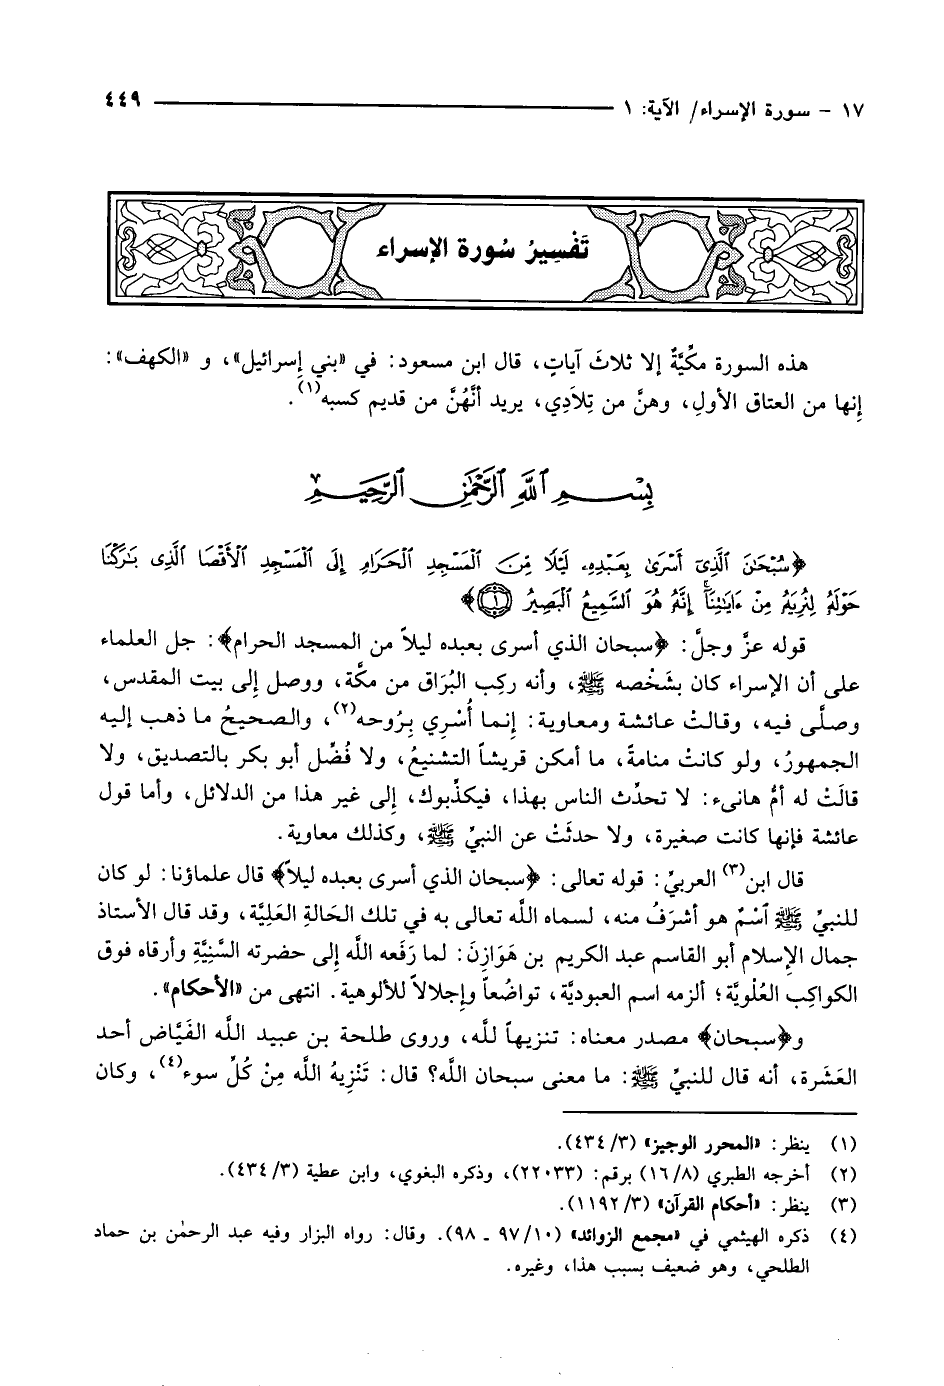 ١٧ - سورة الإسراء/ الآية: ١ ٤٤٩
تَفْسِيرُ سُورة الإسراء
هذه السورة مكِّيَّةٌ إلا ثلاثَ آياتٍ، قال ابن مسعود: في «بني إسرائيل»، و «الكهف»:
إنها من العتاق الأولِ، وهنَّ من تِلاَدِي، يريد أنَّهُنَّ من قديم كسبه(١).
بِسْمِ ٱللَّهِ ٱلرَّحْمَٰنِ ٱلرَّحِيمِ
﴿سُبْحَٰنَ ٱلَّذِىٓ أَسْرَىٰ بِعَبْدِهِۦ لَيْلًا مِّنَ ٱلْمَسْجِدِ ٱلْحَرَامِ إِلَى ٱلْمَسْجِدِ ٱلْأَقْصَا ٱلَّذِى بَٰرَكْنَا
حَوْلَهُۥ لِنُرِيَهُۥ مِنْ ءَايَٰتِنَآ ۚ إِنَّهُۥ هُوَ ٱلسَّمِيعُ ٱلْبَصِيرُ ١﴾
قوله عزَّ وجلَّ: ﴿سبحان الذي أسرى بعبده ليلاً من المسجد الحرام﴾: جل العلماء
على أن الإسراء كان بشَخْصه ﷺ، وأنه ركِب البُرَاق من مكَّة، ووصل إلى بيت المقدس،
وصلَّى فيه، وقالتْ عائشة ومعاوية: إنما أُسْرِي بِرُوحه(٢)، والصحيحُ ما ذهب إليه
الجمهورُ، ولو كانتْ منامةً، ما أمكن قريشاً التشنيعُ، ولا فُضِّل أبو بكر بالتصديق، ولا
قالَتْ له أمُّ هانىء: لا تحدِّث الناس بهذا، فيكذِّبوك، إلى غير هذا من الدلائل، وأما قول
عائشة فإنها كانت صغيرة، ولا حدثَتْ عن النبيِّ ﷺ، وكذلك معاوية.
قال ابن(٣) العربيِّ: قوله تعالى: ﴿سبحان الذي أسرى بعبده ليلاً﴾ قال علماؤنا: لو كان
للنبيِّ ﷺ ٱسْمٌ هو أشرَفُ منه، لسماه اللَّه تعالى به في تلك الحَالةِ العَلِيَّة، وقد قال الأستاذ
جمال الإسلام أبو القاسم عبد الكريم بن هَوَازِنَ: لما رَفَعه اللَّه إلى حضرته السَّنِيَّةِ وأرقاه فوق
الكواكِب العُلْويَّة؛ ألزمه اسم العبوديَّة، تواضُعاً وإجلالاً للألوهية. انتهى من «الأحكام».
و﴿سبحان﴾ مصدر معناه: تنزيهاً للَّه، وروى طلحة بن عبيد اللَّه الفَيَّاض أحد
العَشَرة، أنه قال للنبيِّ ﷺ: ما معنى سبحان اللَّه؟ قال: تَنْزِيهُ اللَّه مِنْ كُلِّ سوء(٤)، وكان
(١) ينظر: «المحرر الوجيز» (٤٣٤/٣).
(٢) أخرجه الطبري (١٦/٨) برقم: (٢٢٠٣٣)، وذكره البغوي، وابن عطية (٤٣٤/٣).
(٣) ينظر: «أحكام القرآن» (١١٩٢/٣).
(٤) ذكره الهيثمي في «مجمع الزوائد» (٩٧/١٠ ـ ٩٨). وقال: رواه البزار وفيه عبد الرحمٰن بن حماد
الطلحي، وهو ضعيف بسبب هذا، وغيره.